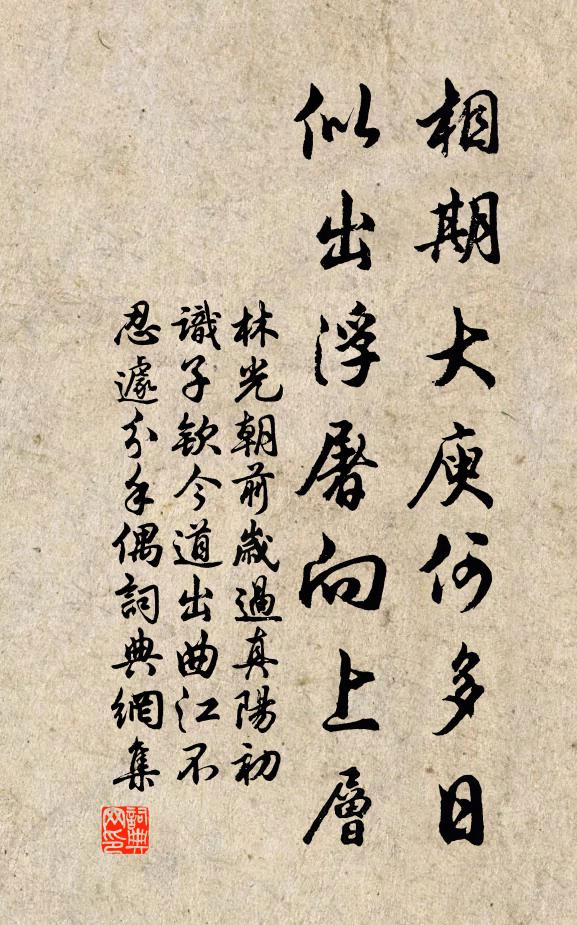 相期大庾何多日
似出浮屠向上層
林光朝前歲過真陽初
識子欽今道出曲江不
忍遽分手偶詞典網集
詞典
網印